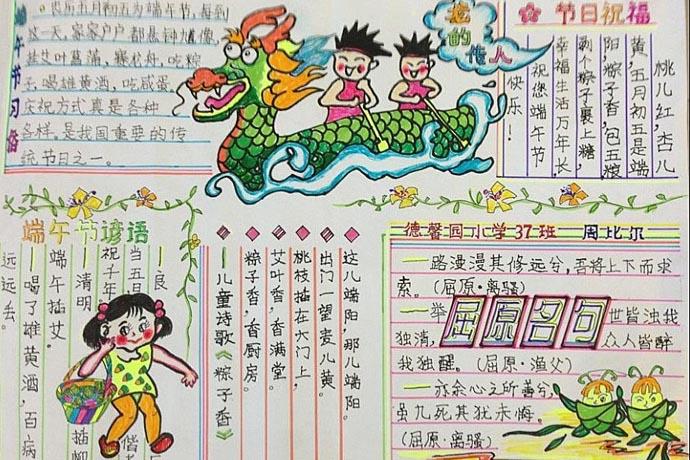 端午节习俗
农历五月初五为端午节,每到
这一天,家家户户都悬钟馗像,
挂艾叶菖蒲,赛龙舟,吃粽
子,喝雄黄酒,吃咸蛋,
庆祝方式真是各种
各样,是我国重要的传
统节日之一。
龙的传人
节日祝福
桃儿红,杏儿
黄,五月初五是端
阳,粽子香,包五粮,
剥个粽子裹上糖,
幸福生活万年长,
祝您端午节
快乐!
端午节谚语
—良
当五日
祝千年
—清明插柳
端午插艾。
—喝了雄黄酒,百病
远远丢。
这儿端阳,那儿端阳。
出门一望麦儿黄。
桃枝插在大门上,
艾叶香,香满堂。
粽子香,香厨房。
—儿童诗歌《粽子香》
德馨园小学37班 周比尔
—路漫漫其修远兮,吾将上下而求
索。(屈原·离骚)
屈原名句
—举世皆浊我
独清,众人皆醉
我独醒。(屈原·渔父)
—亦余心之所善兮,
虽九死其犹未悔。
(屈原·离骚)